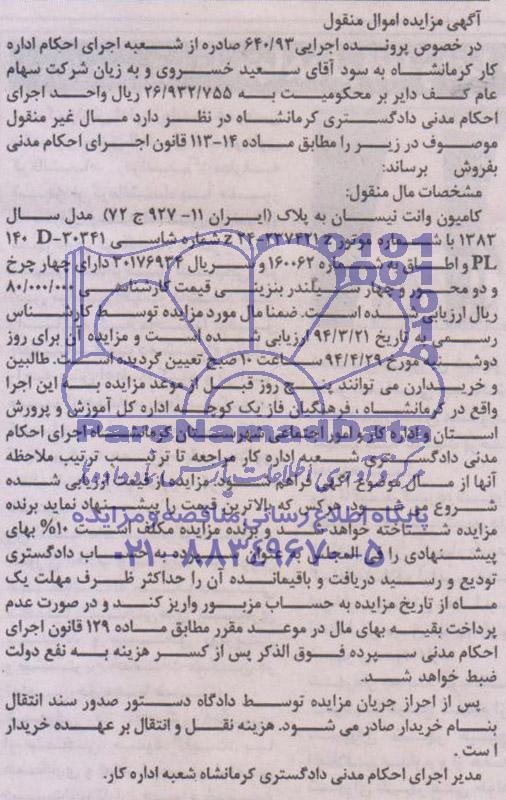 آگهی مزایده اموال منقول
در خصوص پرونده اجرایی ۶۴۰/۹۳ صادره از شعبه اجرای احکام اداره
کار کرمانشاه به سود آقای سعید خسروی و به زیان شرکت سهام
عام کف دایر بر محکومیت به ۲۶/۹۳۲/۷۵۵ ریال واحد اجرای
احکام مدنی دادگستری کرمانشاه در نظر دارد مال غیر منقول
موصوف در زیر را مطابق ماده ۱۴-۱۱۳ قانون اجرای احکام مدنی
بفروش برساند:
مشخصات مال منقول:
کامیون وانت نیسان به پلاک (ایران ۱۱- ۹۲۷ ج ۷۲) مدل سال
۱۳۸۳ با شماره موتور z ۲۴-۲۳۷۴۲۱ z شماره شاسی D-۳۰۳۴۱ ۱۴۰
PL و اطاق با شماره ۱۶۰۰۶۲ و سریال ۲۰۱۷۶۹۳۴ دارای چهار چرخ
و دو محور و چهار سیلندر بنزینی قیمت کارشناسی ۸۰/۰۰۰/۰۰۰
ریال ارزیابی شده است. ضمنا مال مورد مزایده توسط کارشناس
رسمی به تاریخ ۹۴/۳/۲۱ ارزیابی شده است و مزایده آن برای روز
دوشنبه مورخ ۹۴/۴/۲۹ ساعت ۱۰ صبح تعیین گردیده است. طالبین
و خریدارن می توانند پنج روز قبل از موعد مزایده به این اجرا
واقع در کرمانشاه ، فرهنگیان فاز یک کوچه اداره کل آموزش و پرورش
استان و اداره کار و امور اجتماعی شهرستان کرمانشاه اجرای احکام
مدنی دادگستری شعبه اداره کار مراجعه تا ترتیب ترتیب ملاحظه
آنها از مال موضوع آگهی فراهم شود. مزایده از قیمت ارزیابی شده
شروع می شود هرکس که بالاترین قیمت را پیشنهاد نماید برنده
مزایده شناخته خواهد شد و برنده مزایده مکلف است ۱۰% بهای
پیشنهادی را فی المجلس به عنوان سپرده به حساب دادگستری
تودیع و رسید دریافت و باقیمانده آن را حداکثر ظرف مهلت یک
ماه از تاریخ مزایده به حساب مزبور واریز کند و در صورت عدم
پرداخت بقیه بهای مال در موعد مقرر مطابق ماده ۱۲۹ قانون اجرای
احکام مدنی سپرده فوق الذکر پس از کسر هزینه به نفع دولت
ضبط خواهد شد.
پس از احراز جریان مزایده توسط دادگاه دستور صدور سند انتقال
بنام خریدار صادر می شود. هزینه نقل و انتقال بر عهده خریدار
است.
مدیر اجرای احکام مدنی دادگستری کرمانشاه شعبه اداره کار.
ParsNamadData
پایگاه اطلاع رسانی مناقصه و مزایده
۰۲۱-۸۸۳۴۹۶۷۰-۵